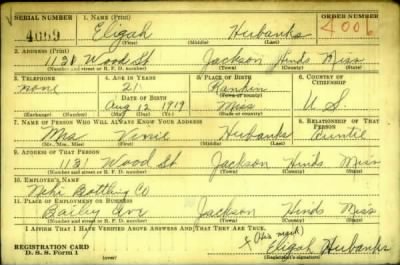 SERIAL NUMBER 1. NAME (Print) ORDER NUMBER
4669 Elijah Hubanks 4006
(First) (Middle) (Last)
2. ADDRESS (Print)
1131 Wood St Jackson Hinds Miss
(Number and street or R. F. D. number) (Town) (County) (State)
3. TELEPHONE 4. AGE IN YEARS 5. PLACE OF BIRTH 6. COUNTRY OF CITIZENSHIP
none 21 Rankin
DATE OF BIRTH (Town or county)
Aug 12 1919 Miss U S
(Exchange) (Number) (Mo.) (Day) (Yr.) (State or country)
7. NAME OF PERSON WHO WILL ALWAYS KNOW YOUR ADDRESS 8. RELATIONSHIP OF THAT PERSON
Mrs Vinie Hubanks Auntie
(Mr., Mrs., Miss) (First) (Middle) (Last)
9. ADDRESS OF THAT PERSON
1131 Wood St Jackson Hinds Miss
(Number and street or R. F. D. number) (Town) (County) (State)
10. EMPLOYER'S NAME
Nehi Bottling Co
11. PLACE OF EMPLOYMENT OR BUSINESS
Bailey Ave Jackson Hinds Miss
(Number and street or R. F. D. number) (Town) (County) (State)
I AFFIRM THAT I HAVE VERIFIED ABOVE ANSWERS AND THAT THEY ARE TRUE.
REGISTRATION CARD X (His mark)
D. S. S. Form 1 Elijah Hubanks
(Registrant's signature)